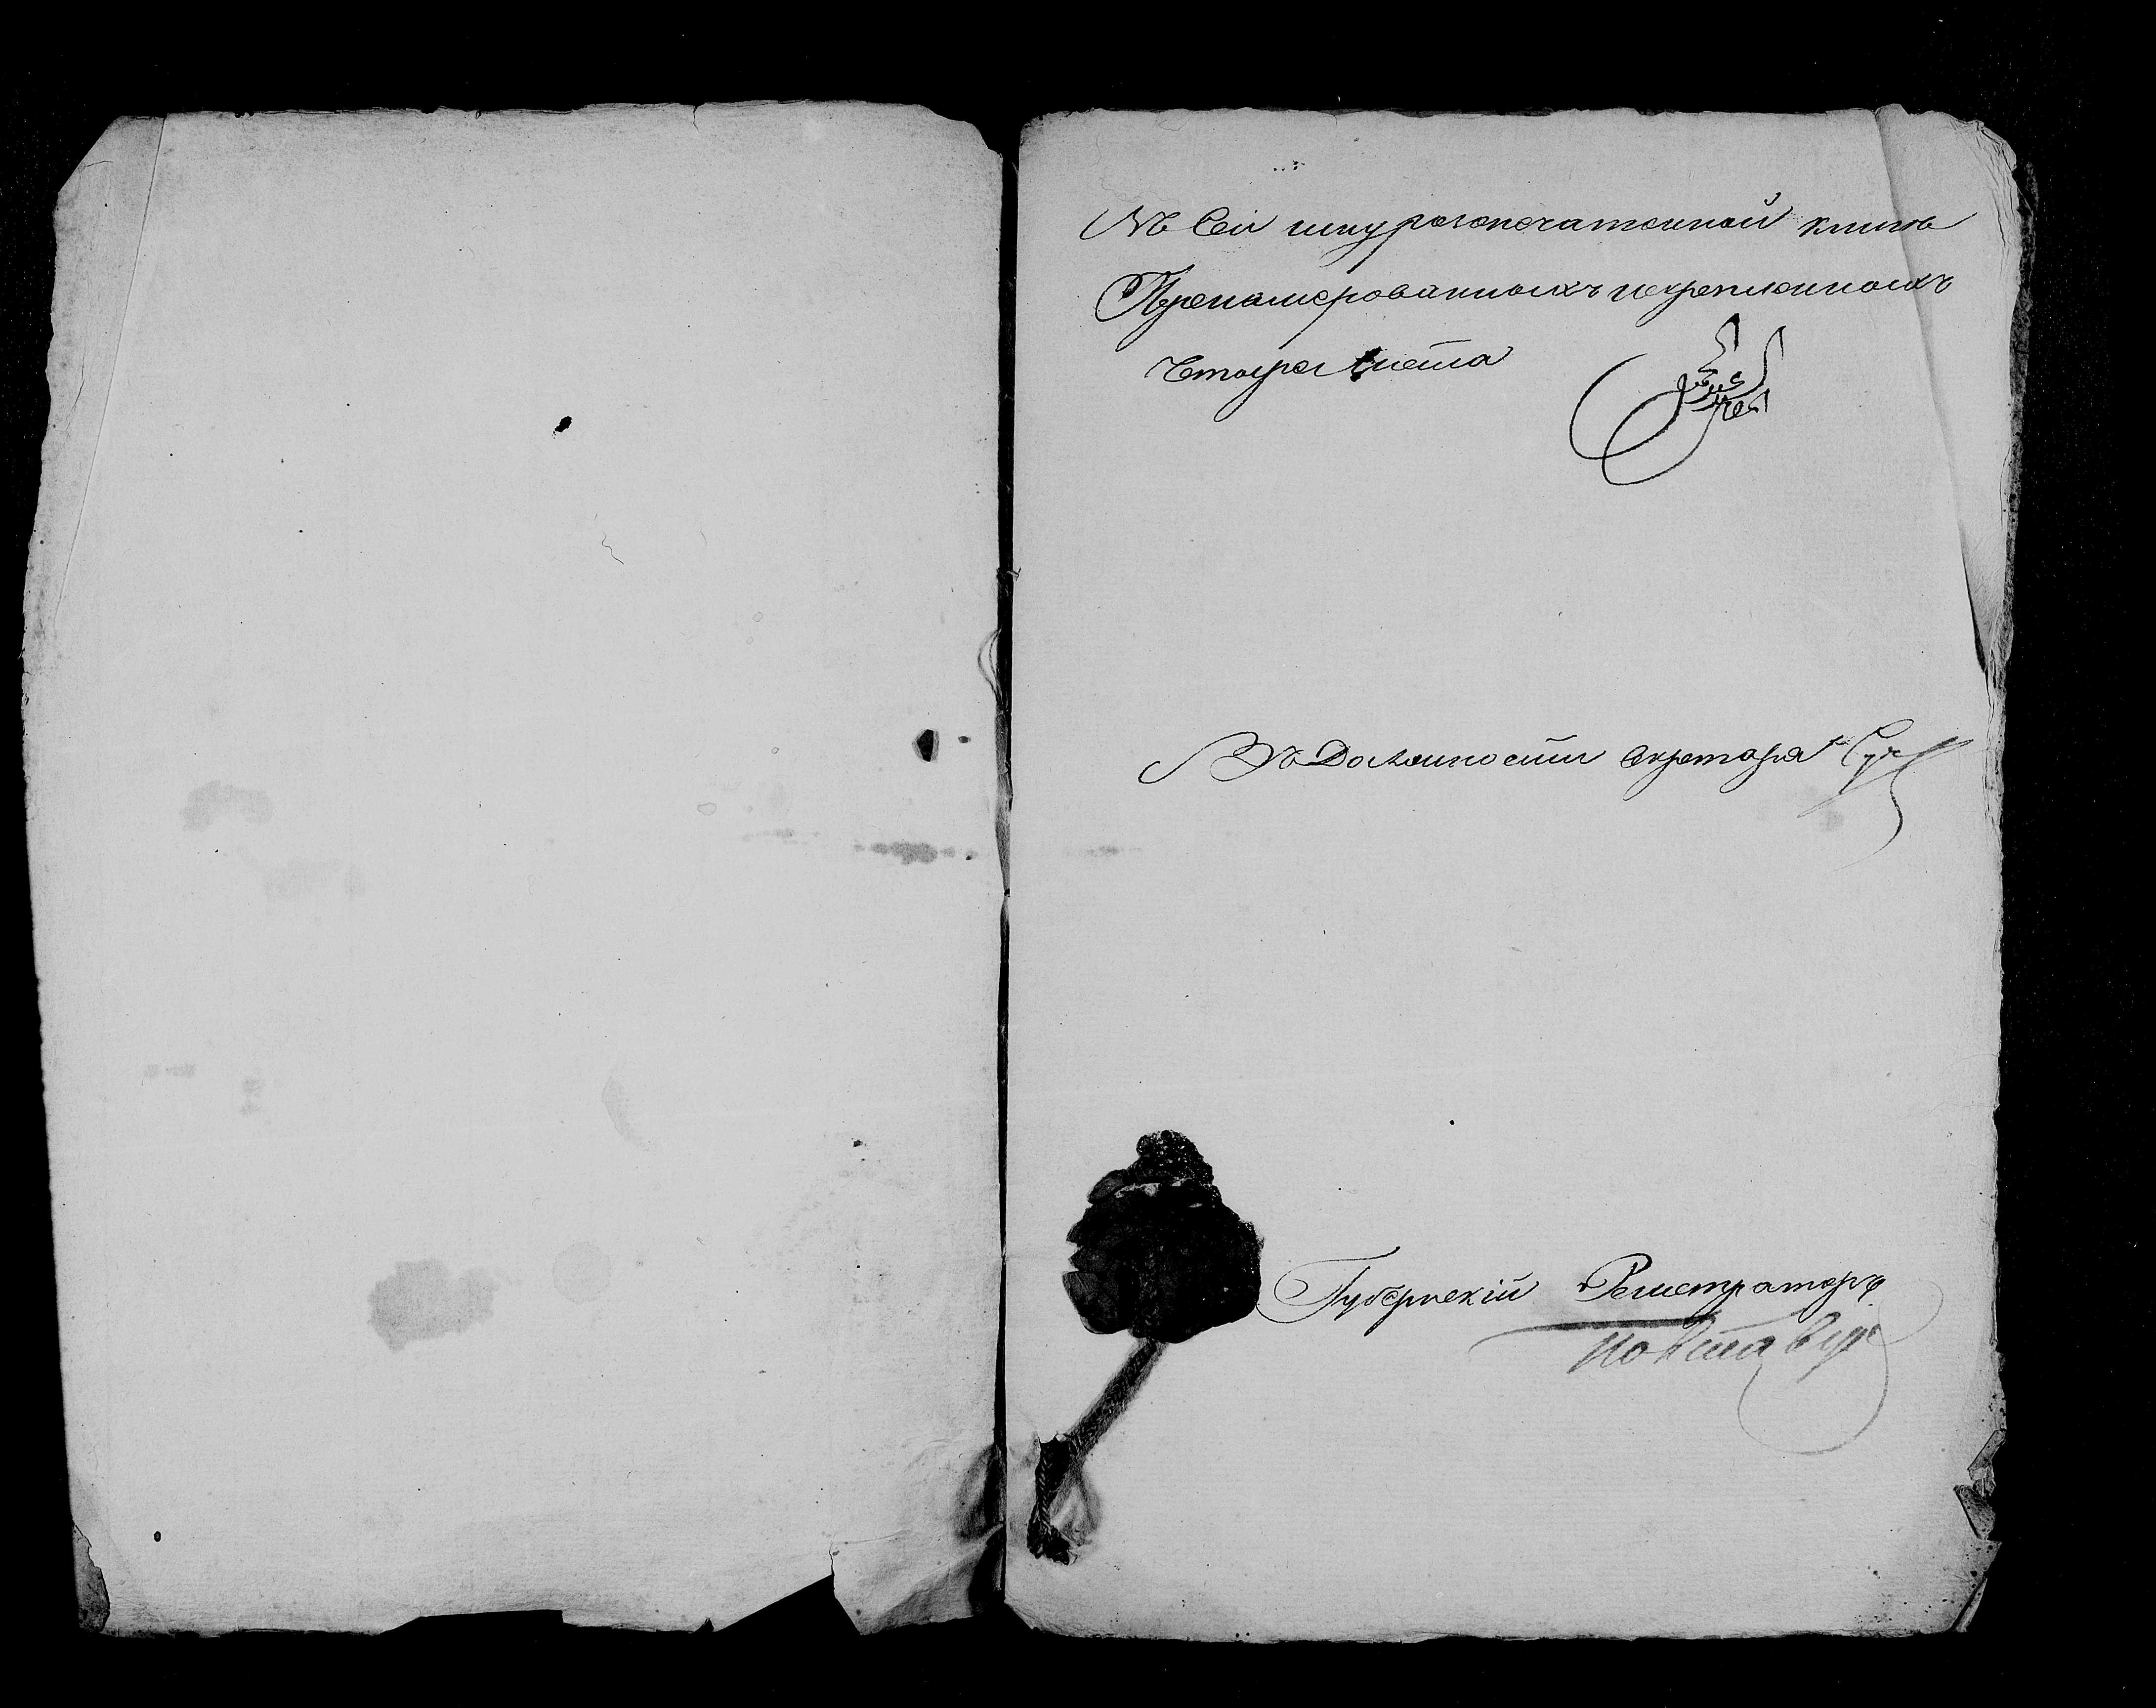 Въ сей шнурозопечатенной книге
Пренамерованныхъ искрепленныхъ
Четыре листа
Въ Должности Секретаря
Губернскій Регистраторъ